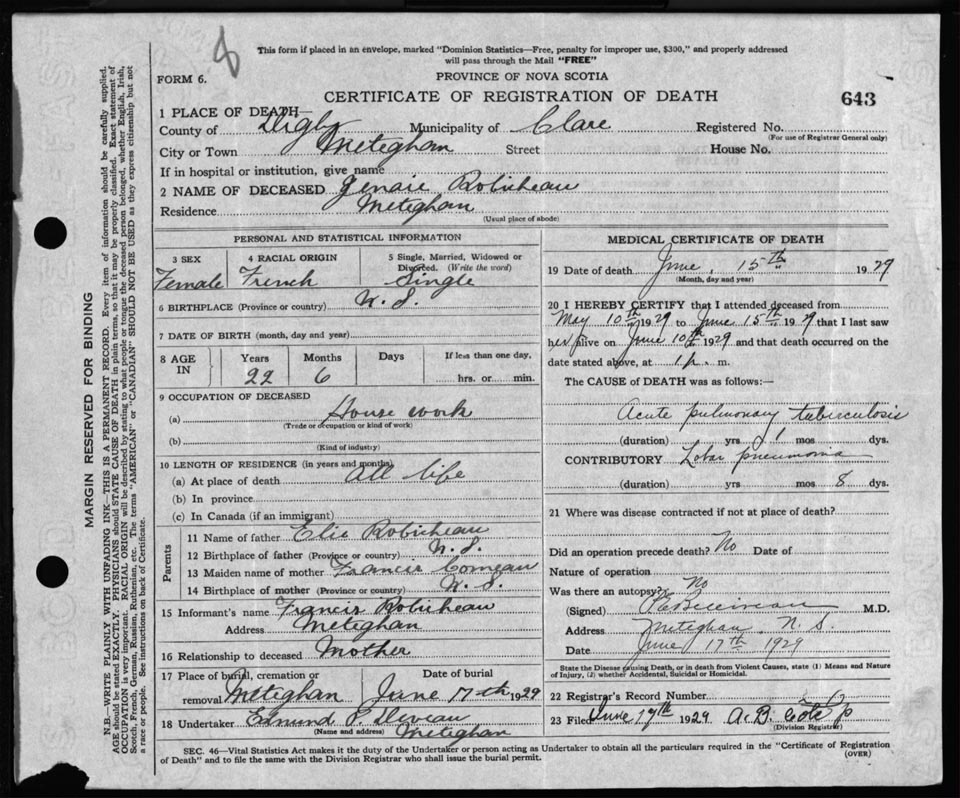 8
This form if placed in an envelope, marked "Dominion Statistics—Free, penalty for improper use, $300," and properly addressed
will pass through the Mail "FREE"
FORM 6.
PROVINCE OF NOVA SCOTIA
CERTIFICATE OF REGISTRATION OF DEATH
643
1 PLACE OF DEATH—
County of Digby Municipality of Clare Registered No.
(For use of Registrar General only)
City or Town Meteghan Street House No.
If in hospital or institution, give name
2 NAME OF DECEASED Genaie Robicheau
Residence Meteghan
(Usual place of abode)
PERSONAL AND STATISTICAL INFORMATION
3 SEX 4 RACIAL ORIGIN 5 Single, Married, Widowed or
Divorced. (Write the word)
Female French Single
6 BIRTHPLACE (Province or country) N. S.
7 DATE OF BIRTH (month, day and year)
8 AGE IN Years Months Days If less than one day,
22 6 hrs. or min.
9 OCCUPATION OF DECEASED
(a) House work
(Trade or occupation or kind of work)
(b)
(Kind of industry)
10 LENGTH OF RESIDENCE (in years and months)
(a) At place of death All life
(b) In province
(c) In Canada (if an immigrant)
Parents
11 Name of father Elie Robicheau
12 Birthplace of father (Province or country) N. S.
13 Maiden name of mother Francis Comeau
14 Birthplace of mother (Province or country) N. S.
15 Informant's name Francis Robicheau
Address Meteghan
16 Relationship to deceased Mother
17 Place of burial, cremation or Date of burial
removal Meteghan June 17th 1929
18 Undertaker Edmund P. Deveau
(Name and address) Meteghan
MEDICAL CERTIFICATE OF DEATH
19 Date of death June, 15th 1929
(Month, day and year)
20 I HEREBY CERTIFY that I attended deceased from
May 10th 1929 to June 15th 1929 that I last saw
her alive on June 10th 1929 and that death occurred on the
date stated above, at 1 p. m.
The CAUSE of DEATH was as follows:—
Acute pulmonary tuberculosis
(duration) yrs 1 mos dys.
CONTRIBUTORY Lobar pneumonia
(duration) yrs mos 8 dys.
21 Where was disease contracted if not at place of death?
Did an operation precede death? No Date of
Nature of operation
Was there an autopsy? No
(Signed) M.D.
Address Meteghan N. S.
Date June 17th 1929
State the Disease causing Death, or in death from Violent Causes, state (1) Means and Nature
of Injury, (2) whether Accidental, Suicidal or Homicidal.
22 Registrar's Record Number
23 Filed June 17th 1929 A. B.
(Division Registrar)
SEC. 46—Vital Statistics Act makes it the duty of the Undertaker or person acting as Undertaker to obtain all the particulars required in the "Certificate of Registration
of Death" and to file the same with the Division Registrar who shall issue the burial permit.
(OVER)
MARGIN RESERVED FOR BINDING
N.B.—WRITE PLAINLY WITH UNFADING INK—THIS IS A PERMANENT RECORD. Every item of information should be carefully supplied.
AGE should be stated EXACTLY. PHYSICIANS should STATE CAUSE OF DEATH in plain terms, so that it may be properly classified. Exact statement of
OCCUPATION is very important. RACIAL ORIGIN will be described by stating to what people or tongue the deceased person belonged, whether English, Irish,
Scotch, French, German, Russian, Ruthenian, etc. The terms "AMERICAN" or "CANADIAN" SHOULD NOT BE USED as they express citizenship but not
a race or people. See instructions on back of Certificate.